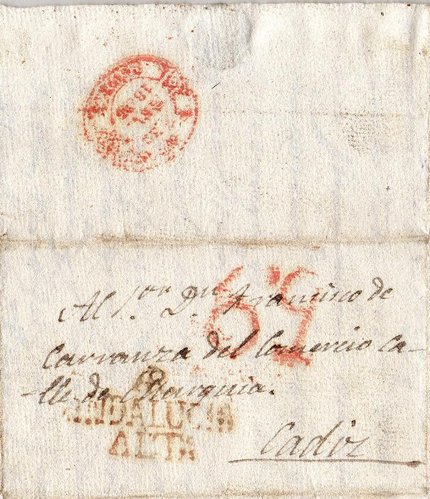 Al S.or D.n Francisco de
Carranza del Comercio ca-
lle de
Cadiz
ANDALUCIA
ALTA